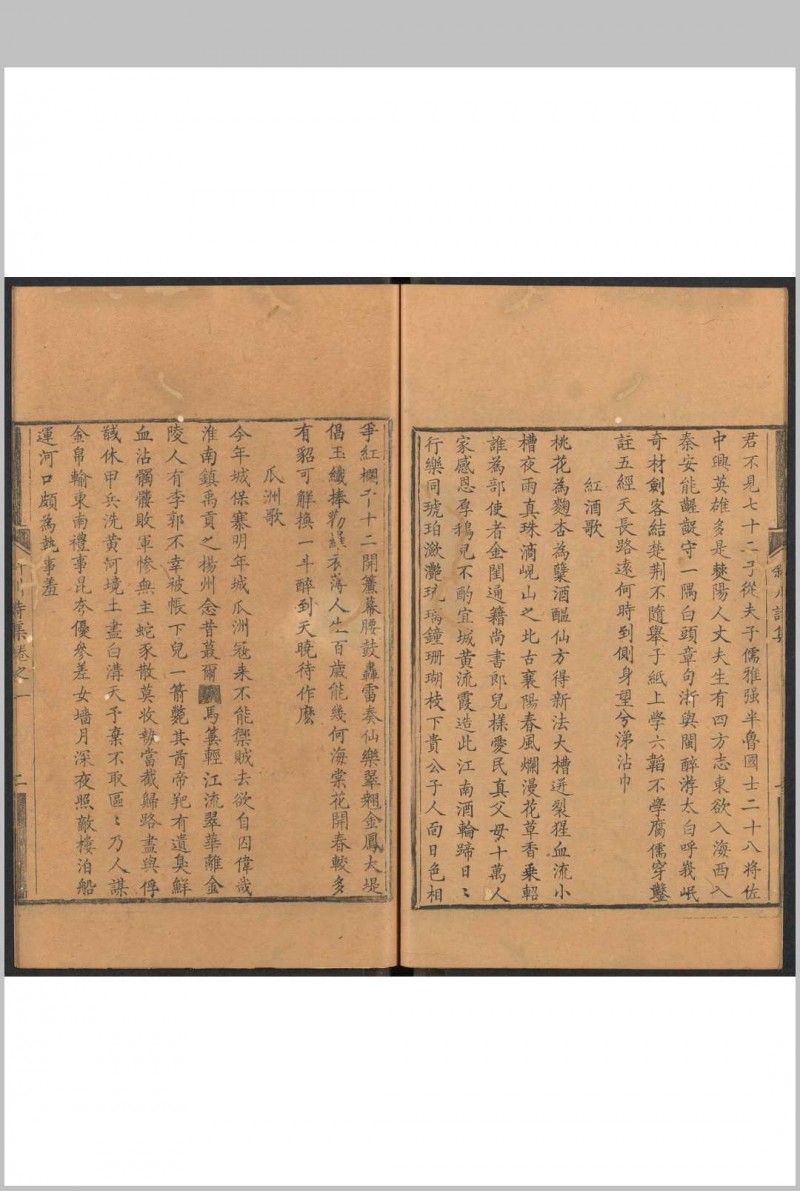 君不見七十二子從夫子儒雅强半魯國士二十八將佐
中興英雄多是𤍠陽人丈夫生有四方志東欲入海西入
秦安能齷齪守一隅白頭章句浙與閩醉游太白呼峨岷
奇材劍客結楚荆不隨舉子紙上學六韜不學腐儒穿鑿
註五經天長路遠何時到側身望兮涕沾巾
紅酒歌
桃花為麴杏為蘗酒醞仙方得新法大槽迸裂猩血流小
槽夜雨真珠滴峴山之北古襄陽春風爛漫花草香乗軺
誰為部使者金閨通籍尚書郎兒様愛民真父母十萬人
家感恩厚鵝兒不酌宜城黄流霞造此江南酒輪蹄日〻
行樂同琥珀瀲灧玻璃鐘珊瑚枝下貴公子人面日色相
爭紅欄干十二開簾幕腰鼓轟雷奏仙樂翠翹金鳳大堤
倡玉纖捧勸羅衣薄人生百歳能幾何海棠花開春較多
有貂可解換一斗醉到天曉待作麽
瓜洲歌
今年城保寨明年城瓜洲冦来不能禦賊去欲自囚偉哉
淮南鎮禹貢之楊州念昔蕞爾馬蔞輕江流翠華離金
陵人有李郭不幸被帳下兒一箭斃其酋帝羓有遺臭鮮
血沾髑髏敗軍慘無主蛇豕散莫收埶當截歸路盡與俘
馘休甲兵洗黄河境土盡白溝天予棄不取區〻乃人謀
金帛輸東南禮事昆夷優參差女墻月深夜照敵樓泊船
運河口頗為執事羞